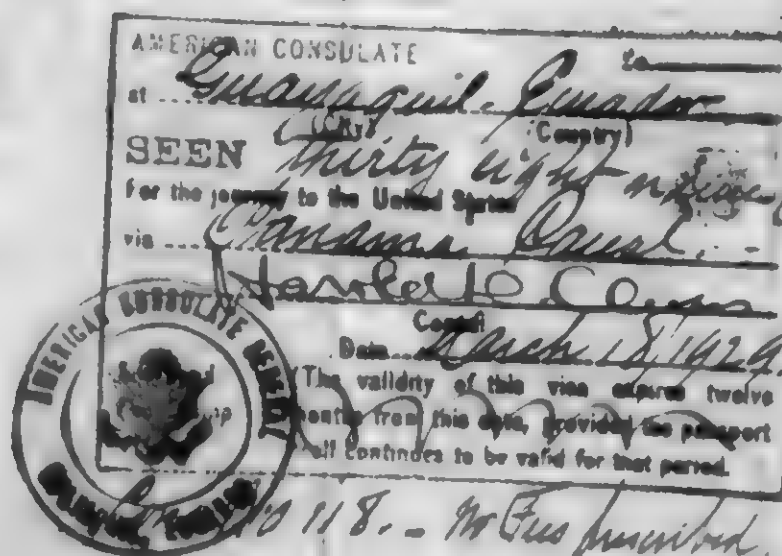 AMERICAN CONSULATE
at Guayaquil, Ecuador
(City) (Country)
SEEN thirty eight
For the journey to the United States
via Panama Canal. -
Harold D.
Consul
Date March 18, 1929
(The validity of this visa expires twelve
months from this date, provided the passport
continues to be valid for that period.
AMERICAN CONSULATE GENERAL
No 118. - No Fee prescribed